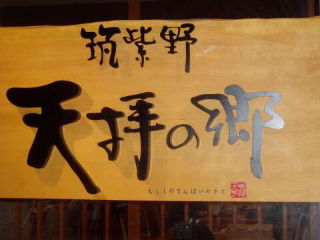 筑紫野
天拝の郷
ちくしのてんぱいのさと